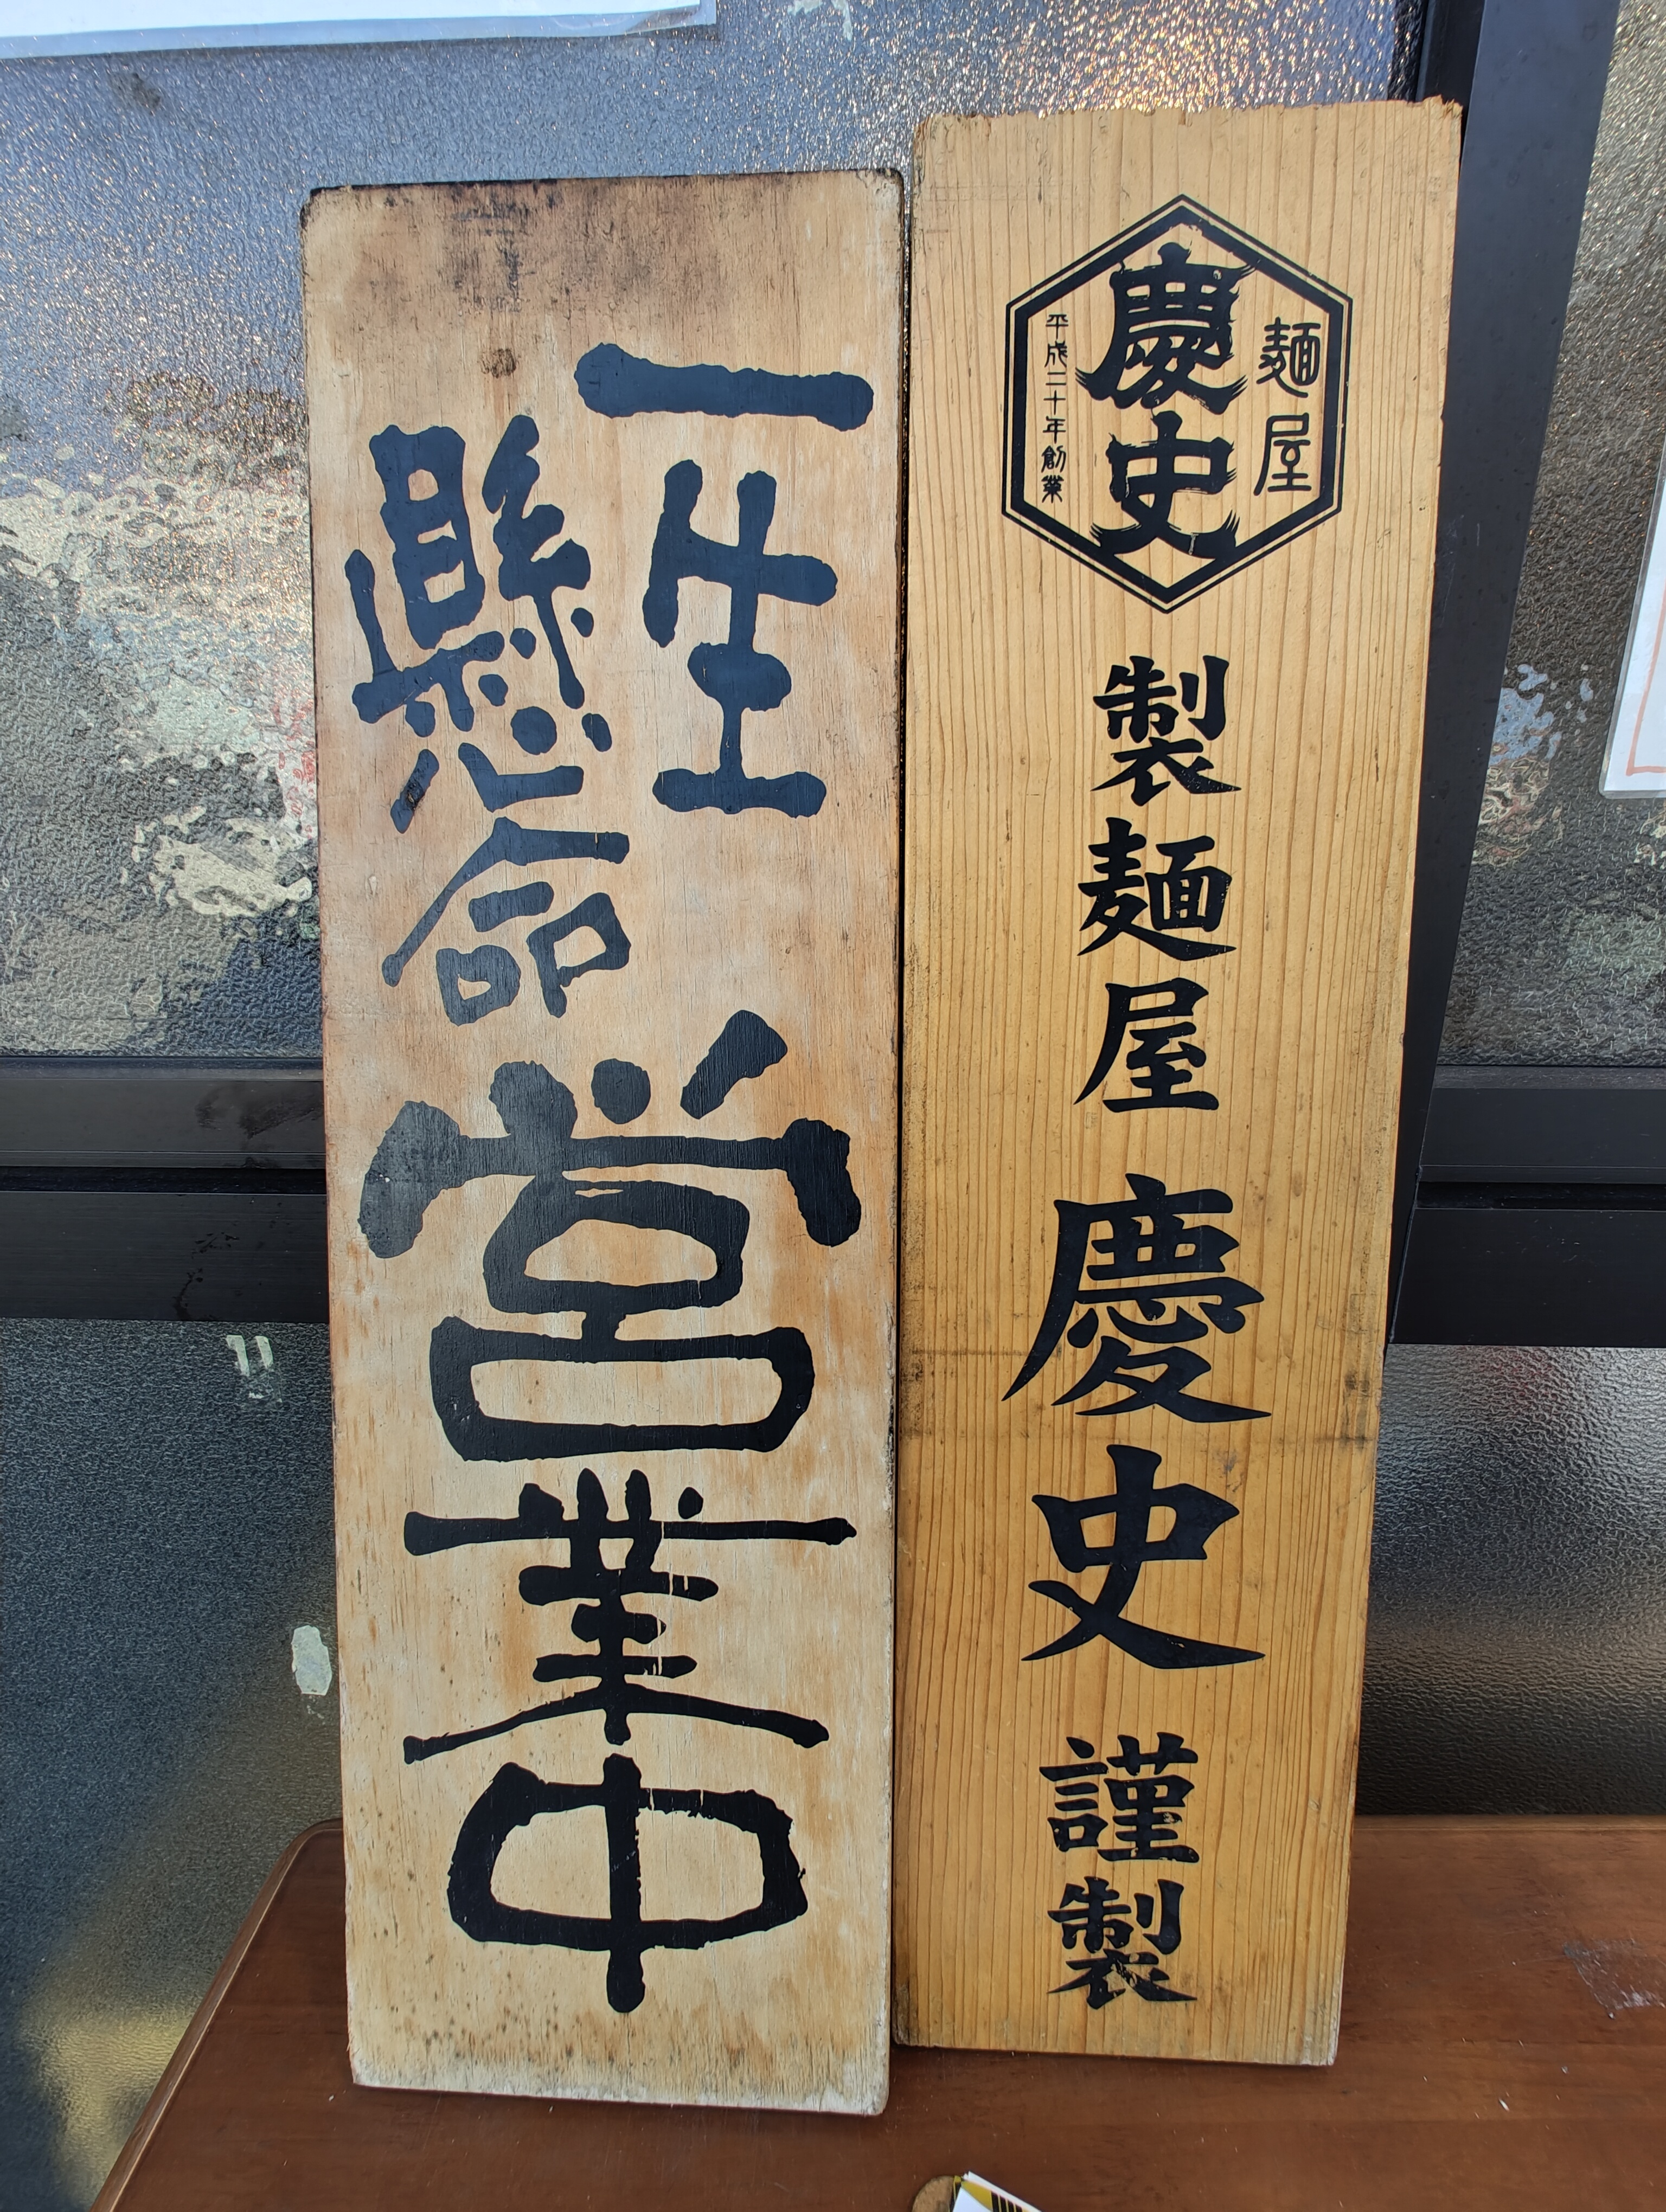 一生
懸命
営業中
麺屋
慶史
平成二十年創業
製麺屋
慶史
謹製